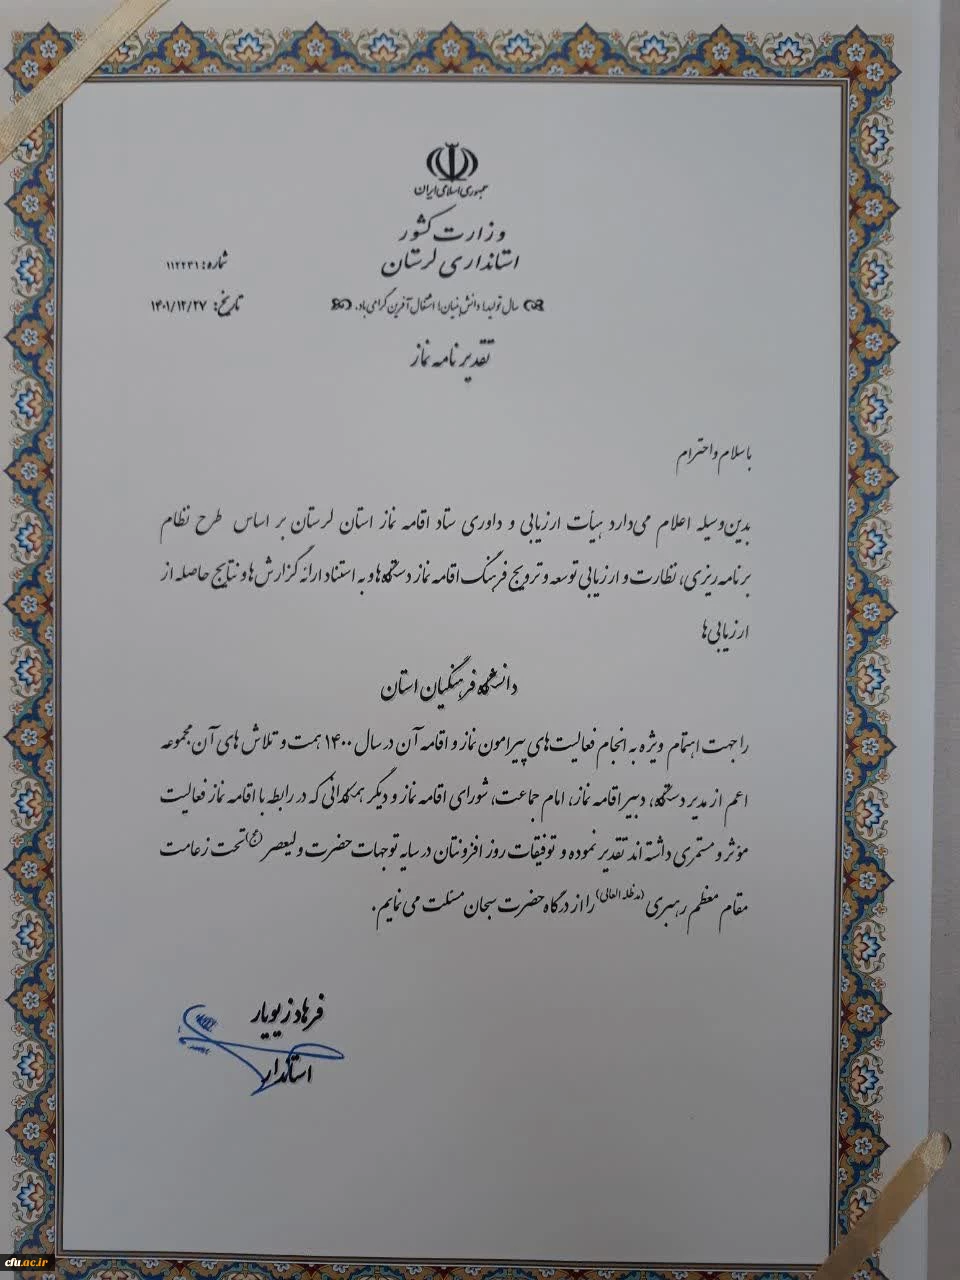 جمهوری اسلامی ایران
وزارت کشور
استانداری لرستان
شماره: ۱۱۲۲۳۱
سال تولید؛ دانش‌بنیان؛ اشتغال آفرین گرامی باد.
تاریخ: ۱۴۰۱/۱۲/۲۷
تقدیر نامه نماز
با سلام و احترام
بدین‌وسیله اعلام می‌دارد هیأت ارزیابی و داوری ستاد اقامه نماز استان لرستان بر اساس طرح نظام
برنامه‌ریزی، نظارت و ارزیابی توسعه و ترویج فرهنگ اقامه نماز دستگاه‌ها و به استناد ارائه گزارش‌ها و نتایج حاصله از
ارزیابی‌ها
دانشگاه فرهنگیان استان
را جهت اهتمام ویژه به انجام فعالیت‌های پیرامون نماز و اقامه آن در سال ۱۴۰۰ همت و تلاش های آن مجموعه
اعم از مدیر دستگاه، دبیر اقامه نماز، امام جماعت، شورای اقامه نماز و دیگر همکارانی که در رابطه با اقامه نماز فعالیت
مؤثر و مستمری داشته اند تقدیر نموده و توفیقات روز افزونتان در سایه توجهات حضرت ولیعصر (عج) تحت زعامت
مقام معظم رهبری (مدظله العالی) را از درگاه حضرت سبحان مسئلت می نمایم.
فرهاد زیویار
استاندار
cfu.ac.ir